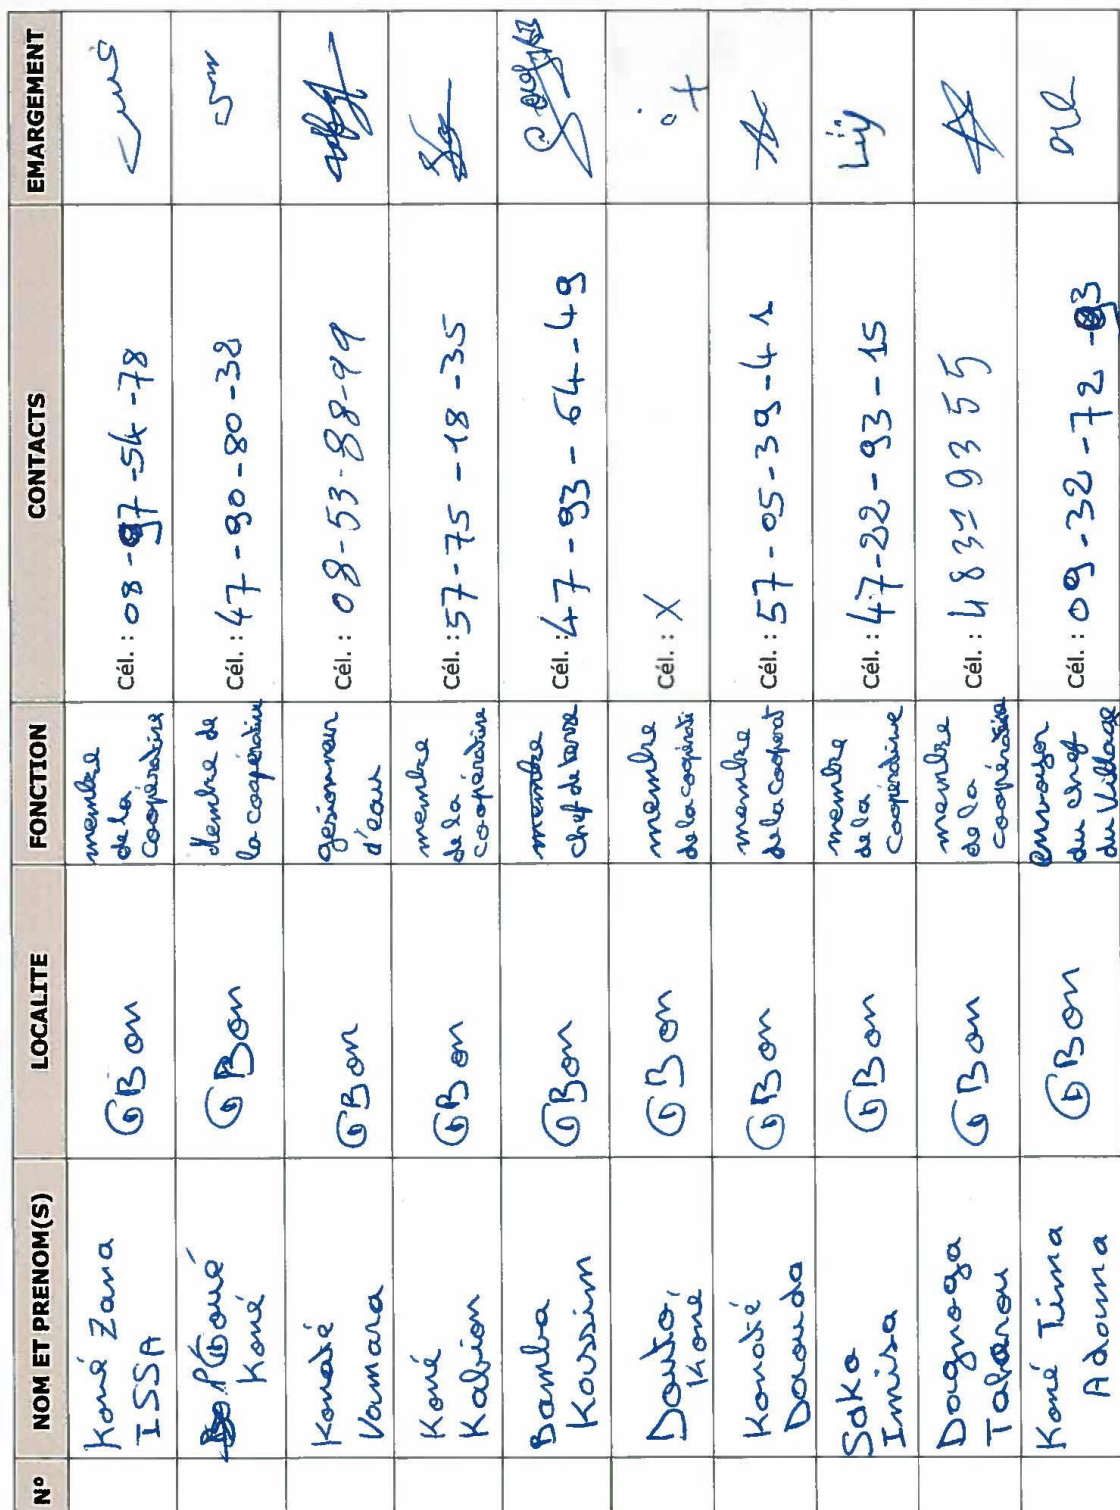 N° NOM ET PRENOM(S) LOCALITE FONCTION CONTACTS EMARGEMENT
Koné Zana
ISSA
GBon
membre
de la
coopérative
Cél. : 08-97-54-78
Koné
GBon
Membre de
la coopérative
Cél. : 47-90-80-32
Konaté
Vamara
GBon
gesionnair
d'eau
Cél. : 08-53-88-99
Koné
Kabion
GBon
membre
de la
coopérative
Cél. : 57-75-18-35
Bamba
Kassim
GBon
membre
chef de terre
Cél. : 47-93-64-49
Daouto,
Koné
GBon
membre
de la coopérati
Cél. : X
Konaté
Daouda
GBon
membre
de la cooperat
Cél. : 57-05-39-41
Sako
Imisa
GBon
membre
de la
Coopérative
Cél. : 47-22-93-15
Dagnoga
GBon
membre
de la
coopérative
Cél. :
Koné Tima
Adama
GBon
du chef
du Village
Cél. : 09-32-72-93